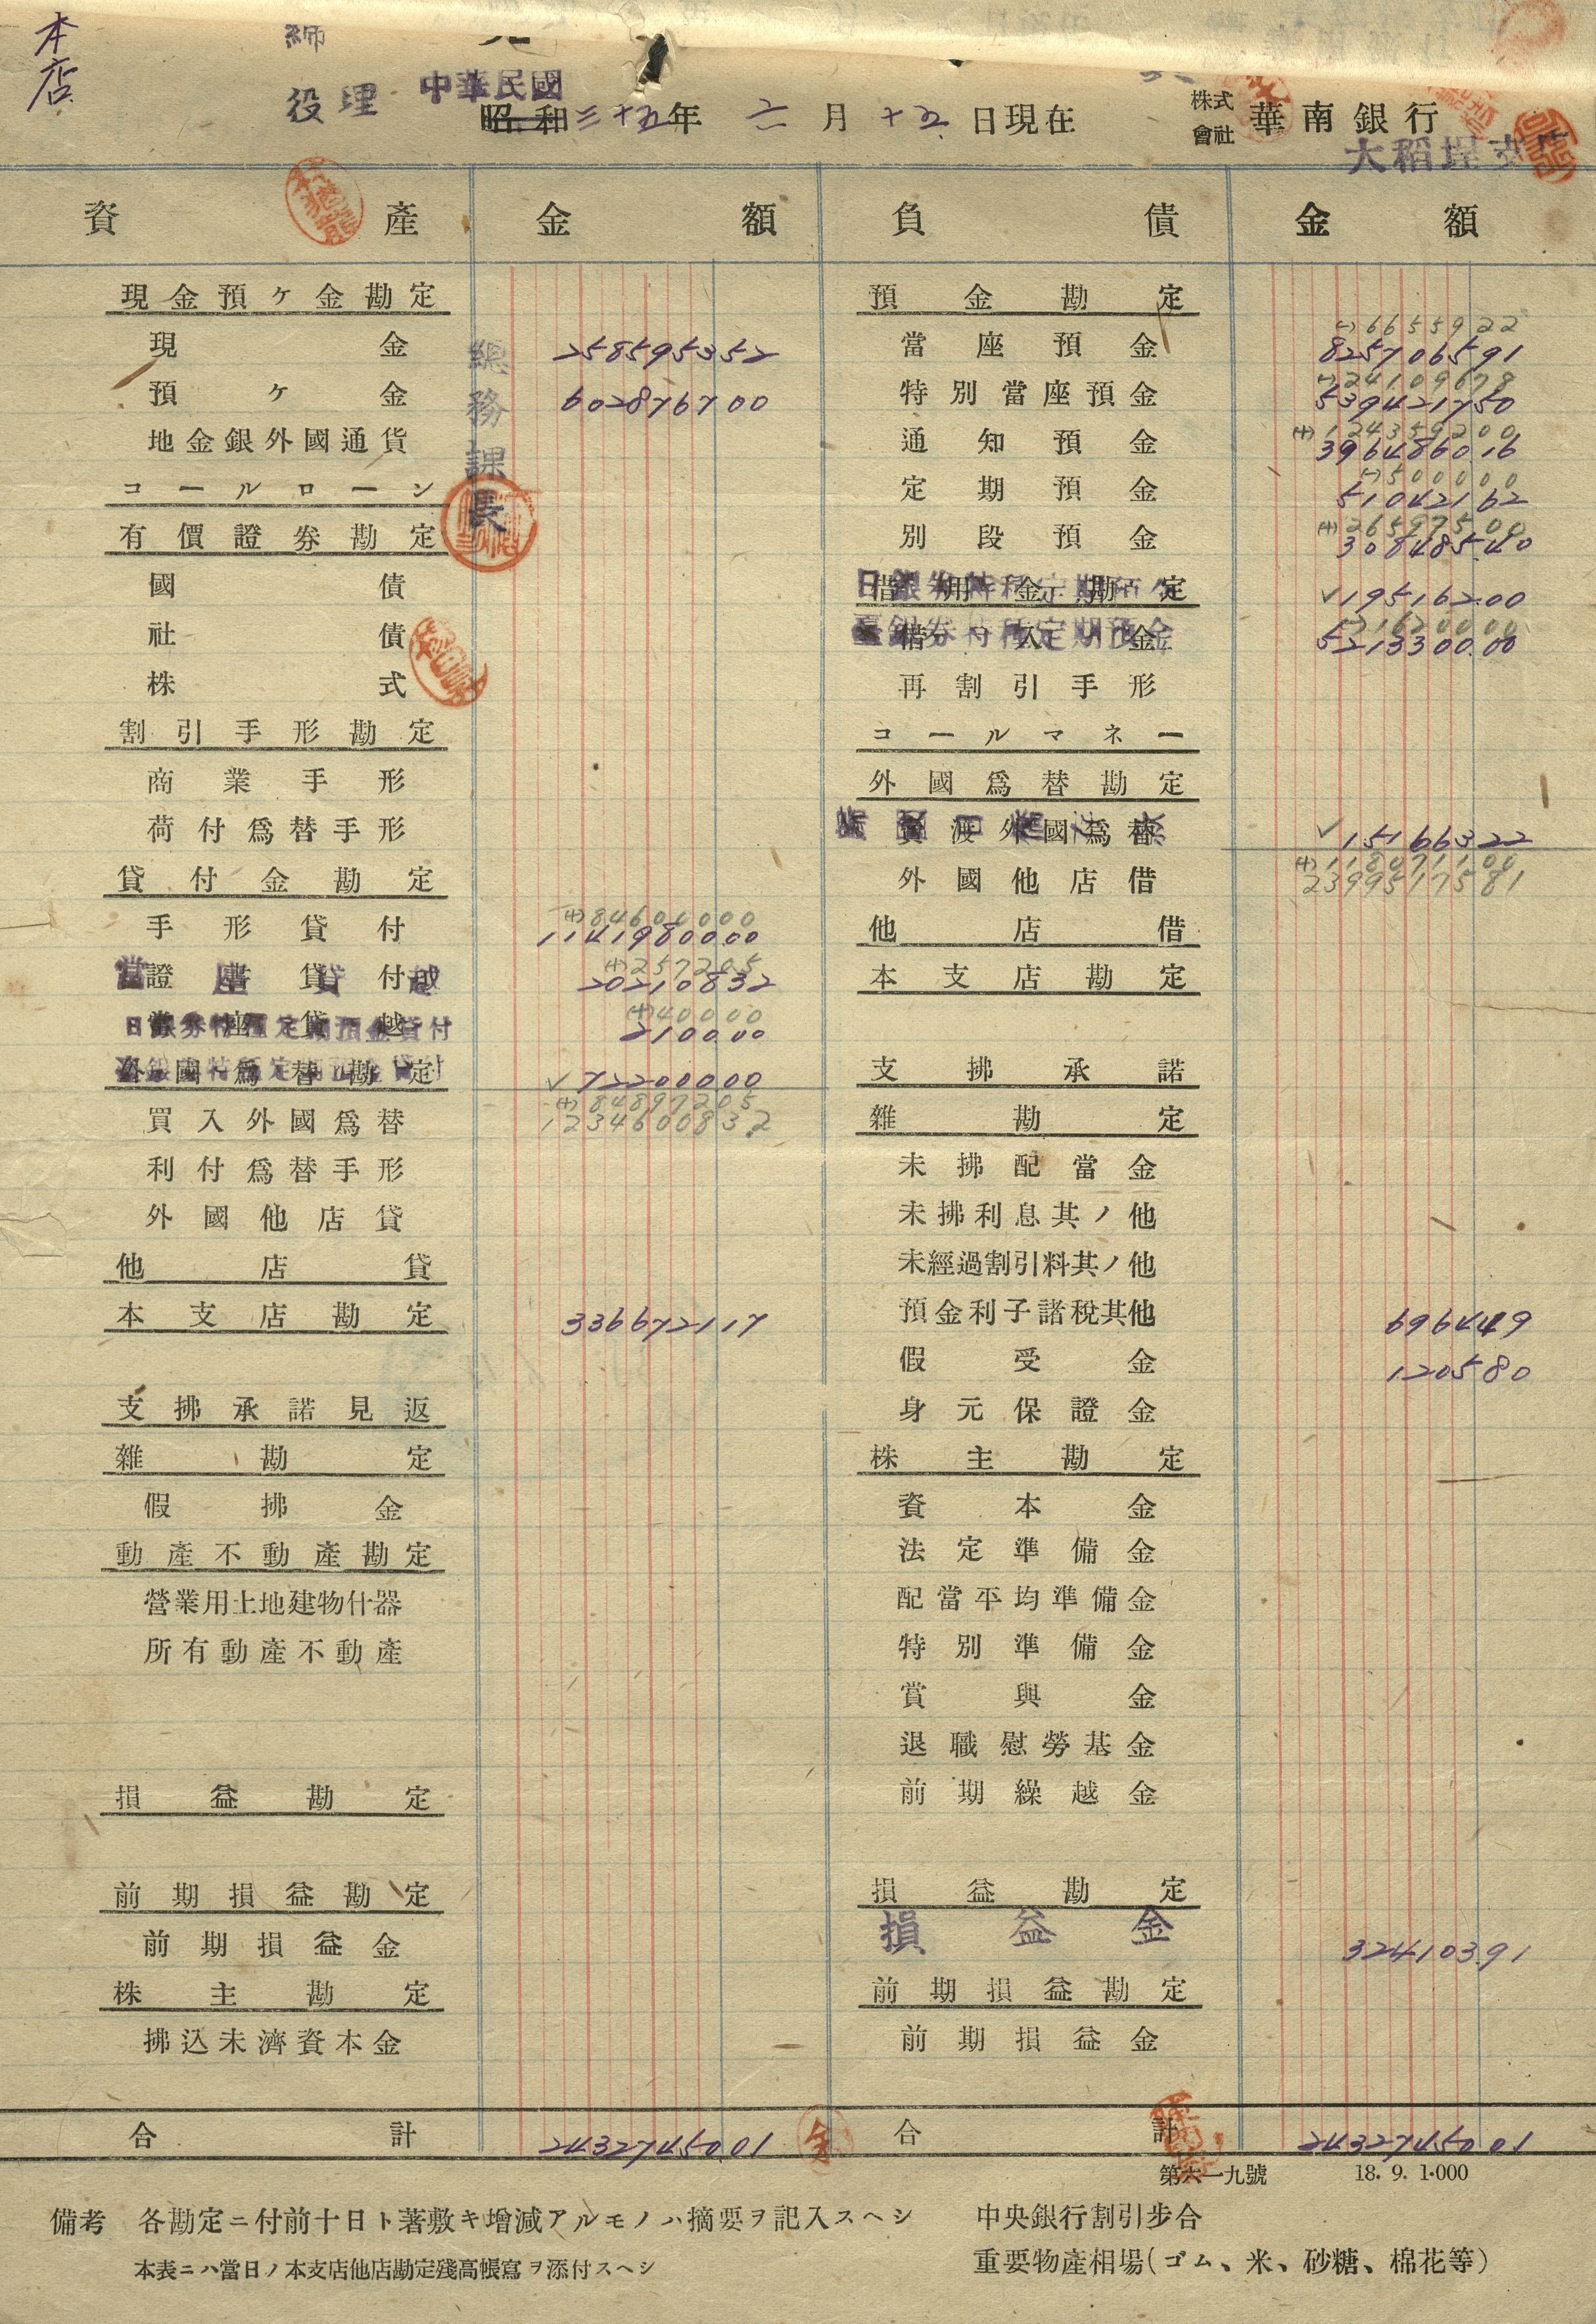 本店
締
役 理
中華民國
昭和三十五年 二月 十五日現在
株式會社 華南銀行
大稻埕支
資產 金額 負債 金額
現金預ヶ金勘定
現金 258595352
預ヶ金 602876700
地金銀外國通貨
コールローン
有價證券勘定
國債
社債
株式
割引手形勘定
商業手形
荷付爲替手形
貸付金勘定
(+)84600000
手形貸付 1141980000
(+)257205
證書貸付 20210832
當座貸越
(+)40000
當座貸越 210000
日銀券特種定期預金貸付
外國爲替勘定 ✓72200000
臺銀券特種定期預金貸付
(+)84897205
買入外國爲替 1234600832
利付爲替手形
外國他店貸
他店貸
本支店勘定 336672117
支拂承諾見返
雜勘定
假拂金
動產不動產勘定
營業用土地建物什器
所有動產不動產
損益勘定
前期損益勘定
前期損益金
株主勘定
拂込未濟資本金
合計 2432745001
總務課長
預金勘定
(-)6655922
當座預金 825706591
(-)24109678
特別當座預金 539421750
(+)124359200
通知預金 396486016
(-)500000
定期預金 51042162
(+)26597500
別段預金 30848540
借用金勘定 ✓19516200
日銀券特種定期預金
(-)2162000
借入金 521330000
臺銀券特種定期預金
再割引手形
コールマネー
外國爲替勘定
賣渡外國爲替 ✓15166322
(+)118071100
外國他店借 2399517581
他店借
本支店勘定
支拂承諾
雜勘定
未拂配當金
未拂利息其ノ他
未經過割引料其ノ他
預金利子諸税其他 696449
假受金 120580
身元保證金
株主勘定
資本金
法定準備金
配當平均準備金
特別準備金
賞與金
退職慰勞基金
前期繰越金
損益勘定
損益金 32410391
前期損益勘定
前期損益金
合計 2432745001
第六一九號 18. 9. 1·000
備考 各勘定ニ付前十日ト著敷キ增減アルモノハ摘要ヲ記入スヘシ
本表ニハ當日ノ本支店他店勘定殘高帳寫ヲ添付スヘシ
中央銀行割引步合
重要物產相場(ゴム、米、砂糖、棉花等)